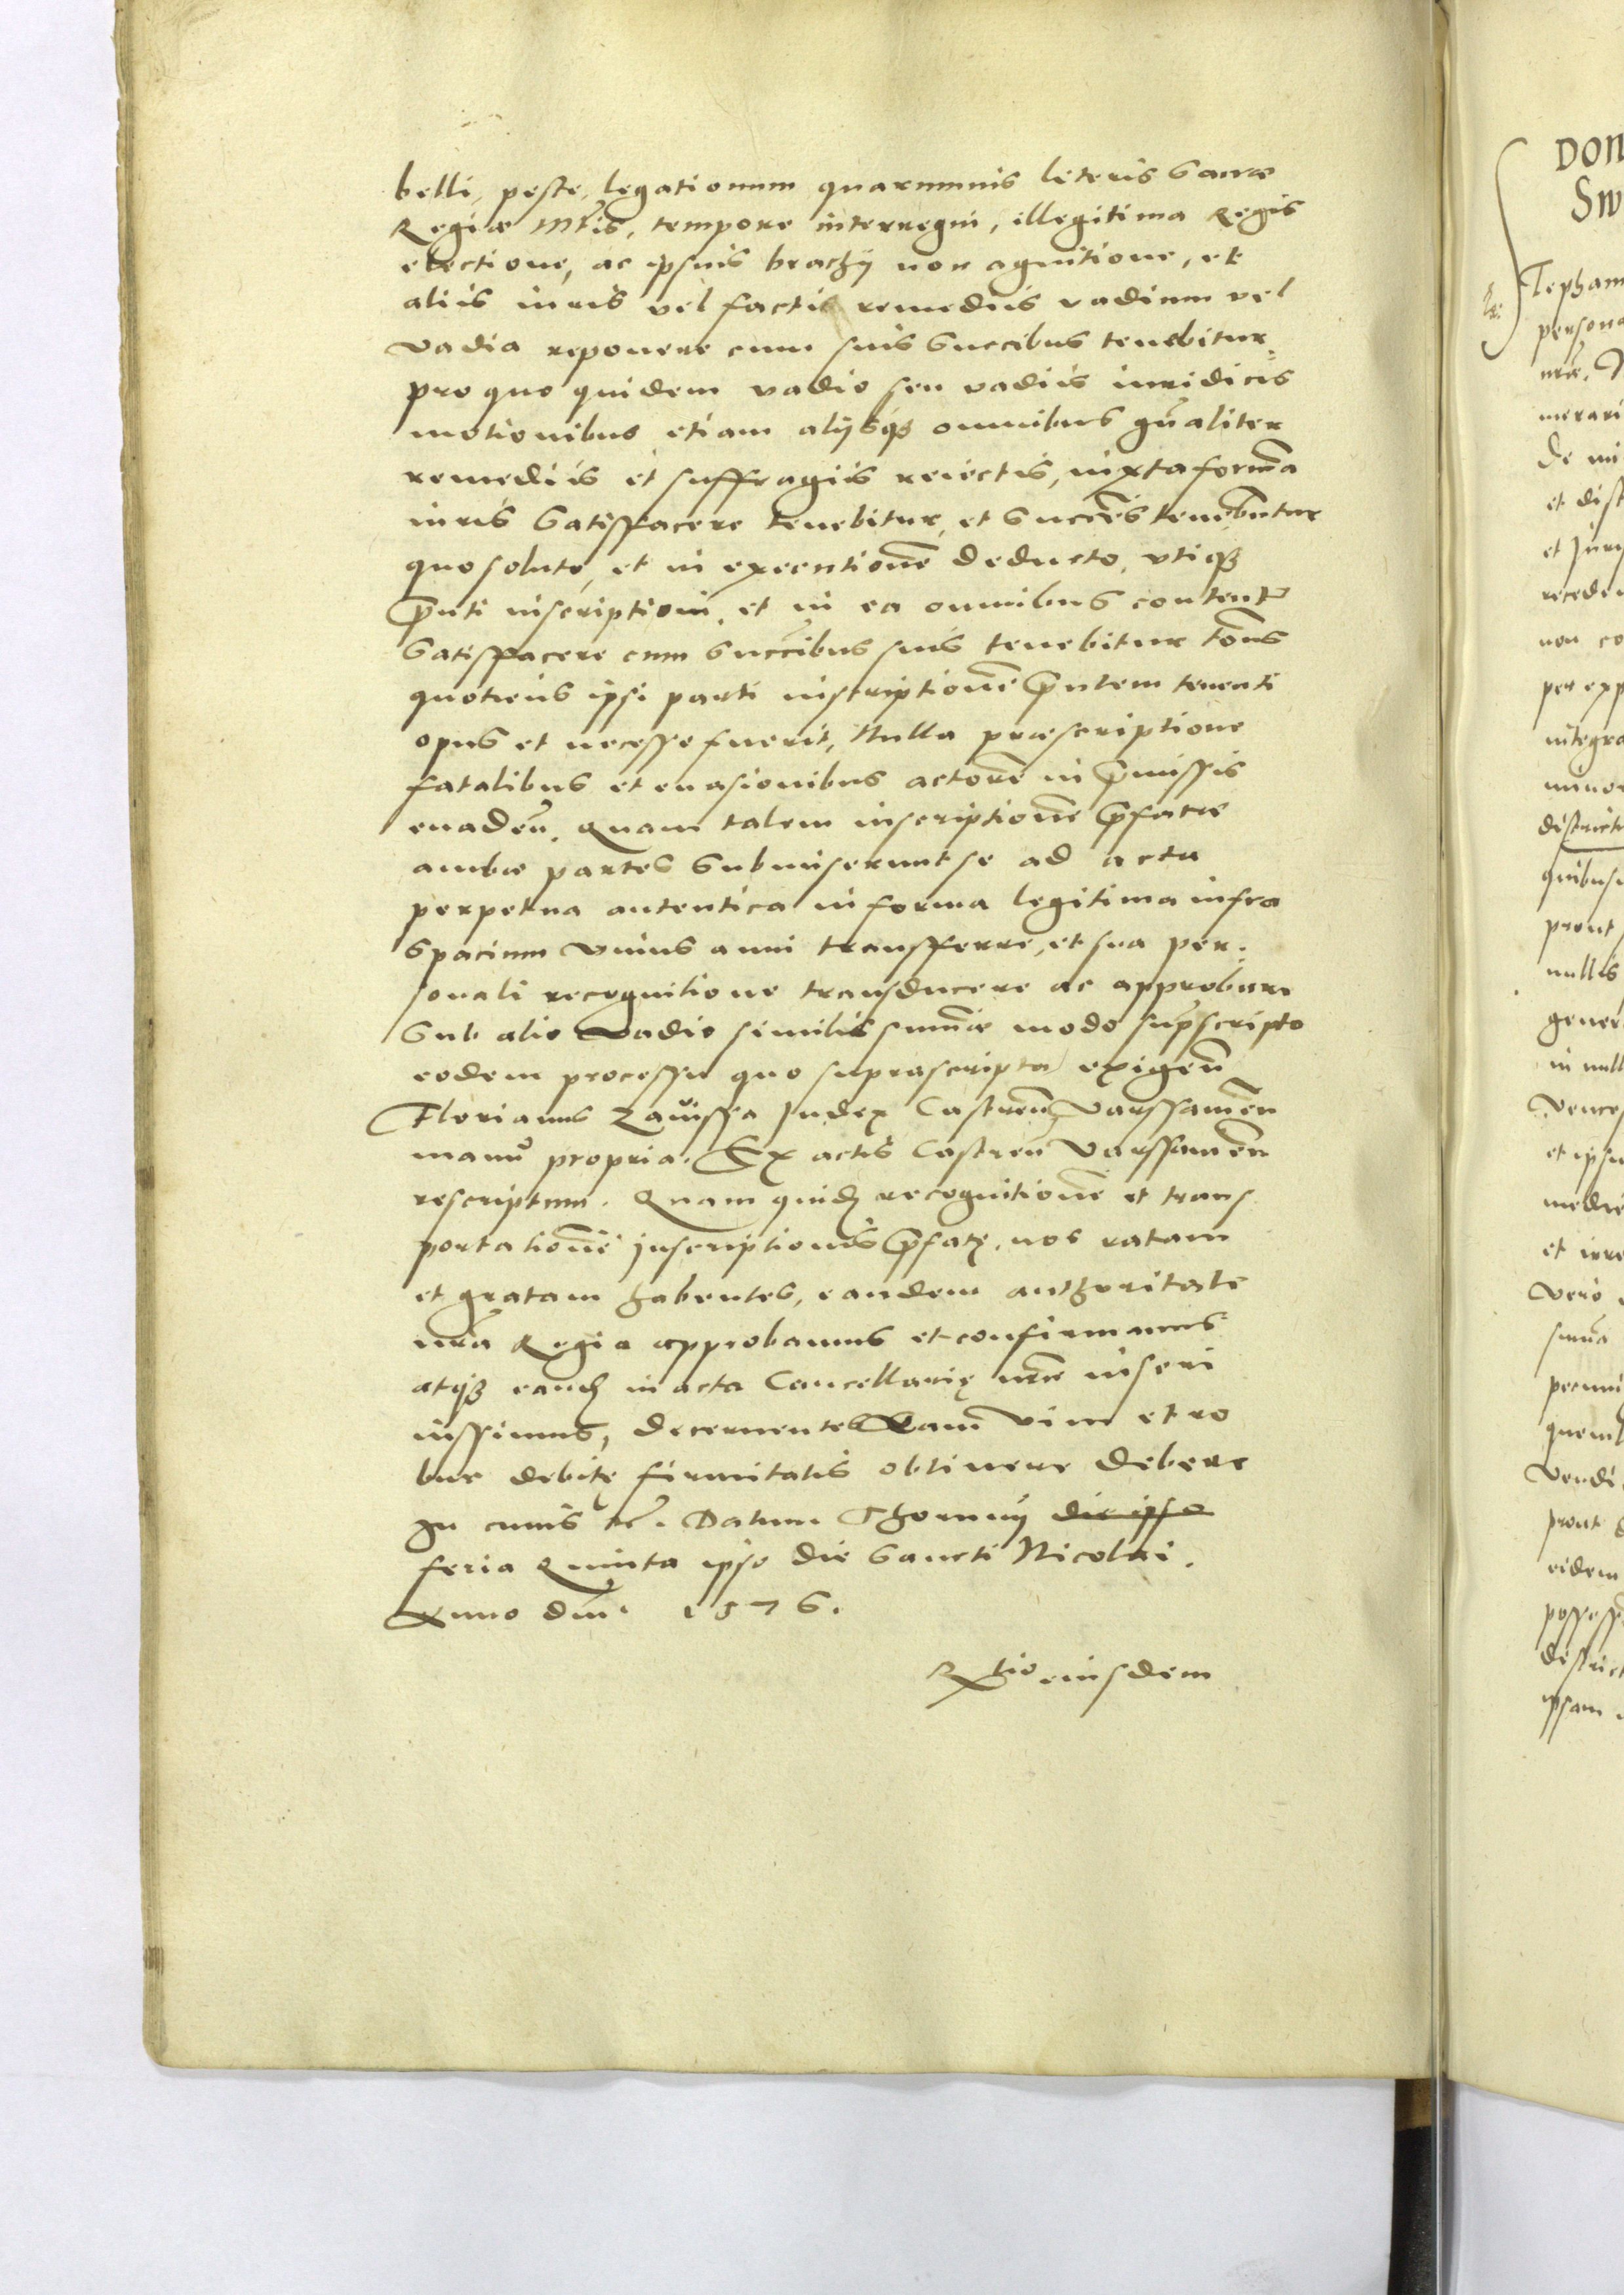 belli, peste, legationum quarumuis leteris Sacræ
Regiæ Mtis, tempore interregni, illegitima Regis
electione, ac ipsius brachÿ non agnitione, et
aliis iuris vel factis remediis vadium vel
vadia reponere cum suis Succibus tenebitur
pro quo quidem vadio seu vadiis iuridicis
motionibus etiam alÿsqȝ omnibus gnaliter
remediis et suffragiis reiectis, iuxta forma
iuris Satisfacere tenebitur, et Succes tenebuntur
quo soluto, et in executione deducto, vtiqȝ
pnti inscriptioni, et in ea omnibus content
Satisfacere cum Succibus suis tenebitur tons
quotiens ipsi parti inscriptione pntem tenenti
opus et necesse fuerit, Nulla præscriptione
fatalibus et euasionibus actore in pmissis
euaden. Quam talem inscriptione pfatæ
ambæ partes Submiserunt se ad acta
perpetua autentica in forma legitima infra
Spacium vnius anni transferre, et sua per-
sonali recognitione transducere ac approbare
Sub alio vadio similis summæ modo supscripto
eodem processu quo suprascripta exigen
Florianus Zawissa Judex Castren Varssauien
manu propria. Ex actis Castren Varssauien
rescriptum. Quam quid recognitione et trans
portatione inscriptionis pfatę, nos ratam
et gratam habentes, eandem authoritate
nra Regia approbamus et confirmamus
atqȝ eand in acta Cancellarię nræ inseri
iussimus, decernentes eam vim et ro
bur debitę firmitatis obtinere debere
In cuius rei. Datum Thorunÿ die ipso
feria Quinta ipso die Sancti Nicolai.
Anno dni. 1576.
Rtio eiusdem
DON
Sw
Tepham
persona
nræ,
merari
de
et dist
et Juris
receden
non co
per exp
integra
minor
districtu
quibusu
prout
nullis
gener
in null
Vences
et ipsu
medie
et irre
Vero
summa
pecuni
quemb
Vendi
prout
eidem
possess
district
ipsam